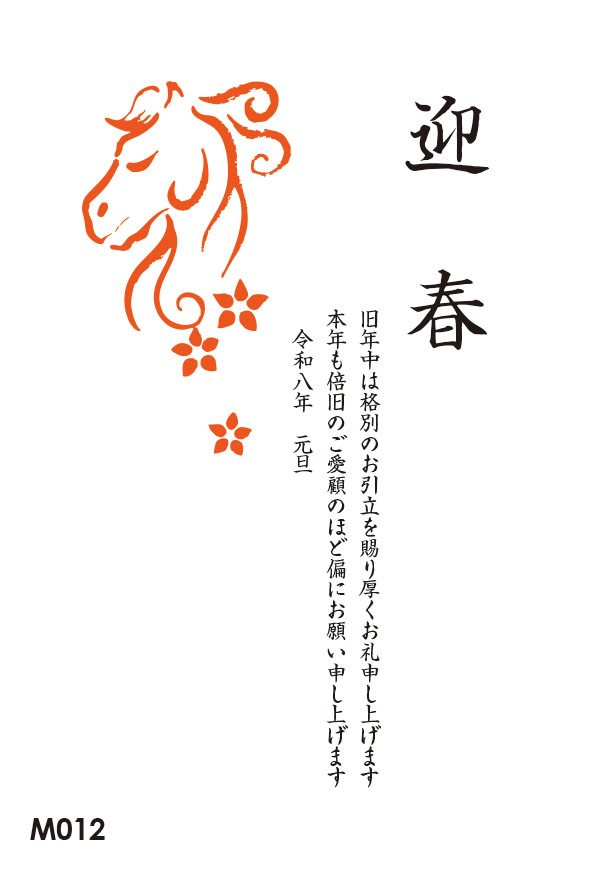 迎春
旧年中は格別のお引立を賜り厚くお礼申し上げます
本年も倍旧のご愛顧のほど偏にお願い申し上げます
令和八年　元旦
M012